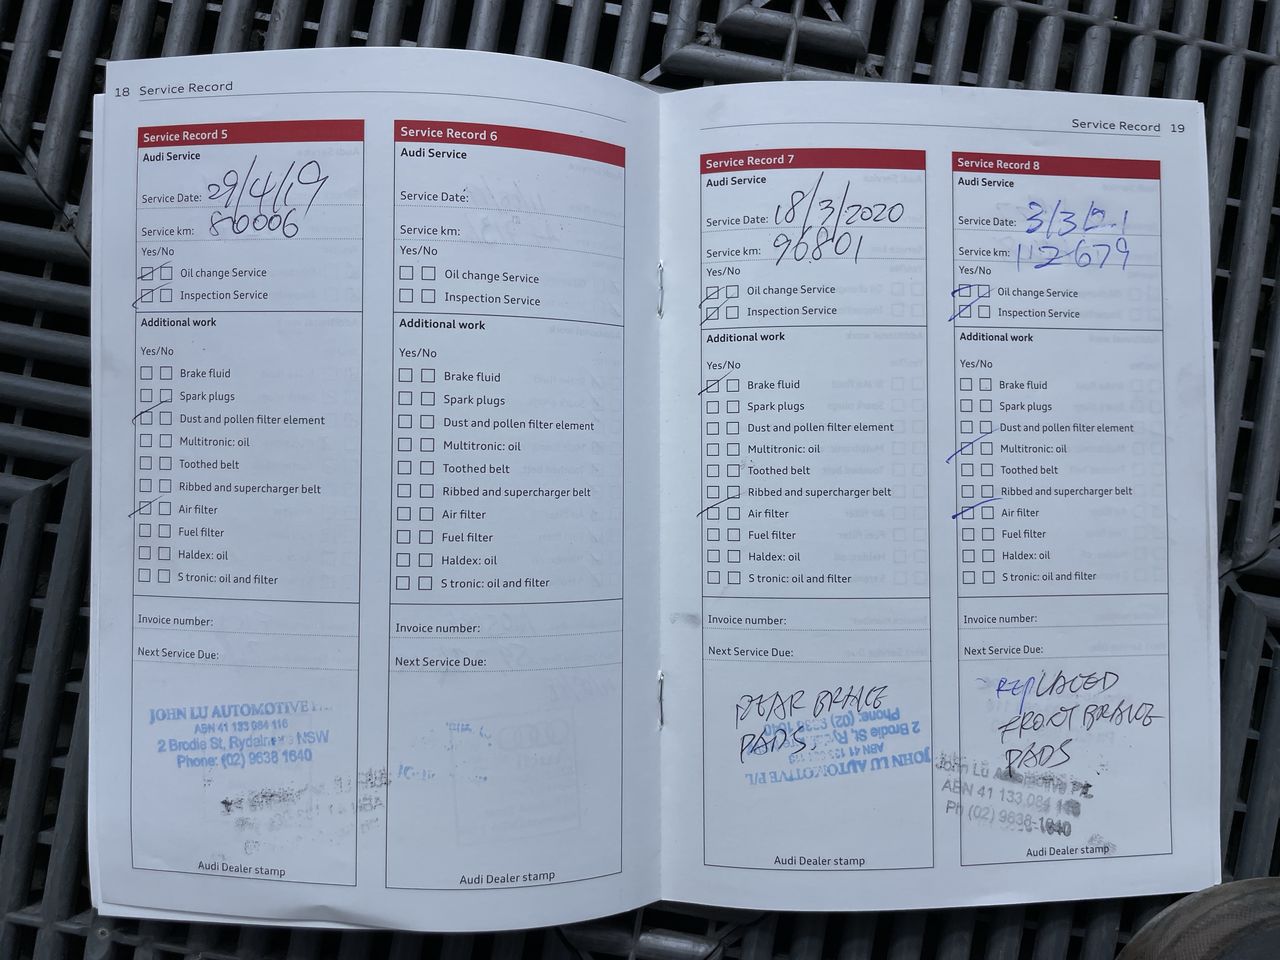 18 Service Record
Service Record 5
Audi Service
Service Date: 29/4/19
Service km: 80006
Yes/No
Oil change Service
Inspection Service
Additional work
Yes/No
Brake fluid
Spark plugs
Dust and pollen filter element
Multitronic: oil
Toothed belt
Ribbed and supercharger belt
Air filter
Fuel filter
Haldex: oil
S tronic: oil and filter
Invoice number:
Next Service Due:
JOHN LU AUTOMOTIVE
ABN 41 133 084 116
2 Brodie St, Rydalmere NSW
Phone: (02) 9638 1640
Audi Dealer stamp
Service Record 6
Audi Service
Service Date:
Service km:
Yes/No
Oil change Service
Inspection Service
Additional work
Yes/No
Brake fluid
Spark plugs
Dust and pollen filter element
Multitronic: oil
Toothed belt
Ribbed and supercharger belt
Air filter
Fuel filter
Haldex: oil
S tronic: oil and filter
Invoice number:
Next Service Due:
Audi Dealer stamp
Service Record 19
Service Record 7
Audi Service
Service Date: 18/3/2020
Service km: 96801
Yes/No
Oil change Service
Inspection Service
Additional work
Yes/No
Brake fluid
Spark plugs
Dust and pollen filter element
Multitronic: oil
Toothed belt
Ribbed and supercharger belt
Air filter
Fuel filter
Haldex: oil
S tronic: oil and filter
Invoice number:
Next Service Due:
REAR BRAKE
PADS.
JOHN LU AUTOMOTIVE P/L
ABN 41 133
2 Brodie St, Rydalmere
Phone: (02) 9638 1640
Audi Dealer stamp
Service Record 8
Audi Service
Service Date: 3/3/21
Service km: 112679
Yes/No
Oil change Service
Inspection Service
Additional work
Yes/No
Brake fluid
Spark plugs
Dust and pollen filter element
Multitronic: oil
Toothed belt
Ribbed and supercharger belt
Air filter
Fuel filter
Haldex: oil
S tronic: oil and filter
Invoice number:
Next Service Due:
REPLACED
FRONT BRAKE
PADS
John Lu Automotive P/L
ABN 41 133 084 116
Ph (02) 9638-1640
Audi Dealer stamp